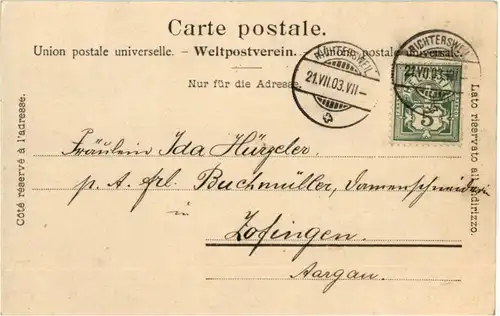 Carte postale.
Union postale universelle. – Weltpostverein. – Unione postale universale.
Nur für die Adresse.
RICHTERSWEIL
21.VII.03.VII–
RICHTERSWEIL
21.VII.03.VII–
5
Côté réservé à l'adresse.
Lato riservato all'indirizzo.
Fräulein Ida Hürzeler
p. A. Frl. Buchmüller, Damenschneiderin
in
Zofingen.
Aargau.